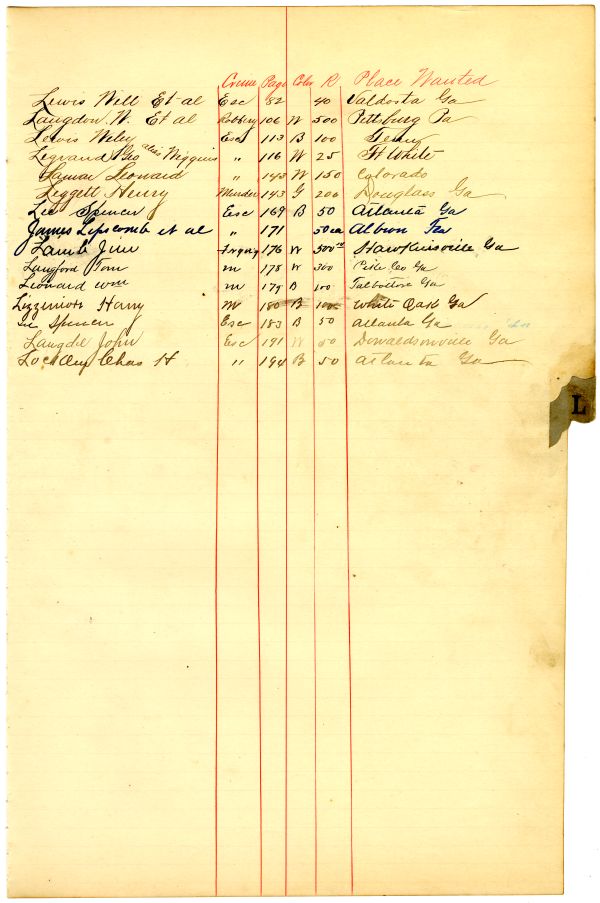 Crime Page Color R Place Wanted
Lewis Will Et al Esc 82 40 Valdosta Ga
Langdon W. Et al Robbery 106 W 500 Pittsburg Pa
Lewis Wiley Esc 113 B 100 Tenny
Legrand Geo alias Wiggins " 116 W 25 Ft White
Lamar Leonard " 143 W 150 Colorado
Leggett Henry Murder 143 G 200 Douglass Ga
Lee Spencer Esc 169 B 50 Atlanta Ga
James Lipscomb et al " 171 50 ea Albion
Lamb Jim 176 W 500 Hawkinsville Ga
Langford Tom m 178 W 300 Pike Co Ga
Leonard Wm m 179 B 100 Talbotton Ga
Harry M 180 B 100 White Oak Ga
Lee Spencer Esc 183 B 50 Atlanta Ga
Langdil John Esc 191 W 50 Donaldsonville Ga
Chas H " 194 B 50 Atlanta Ga
L